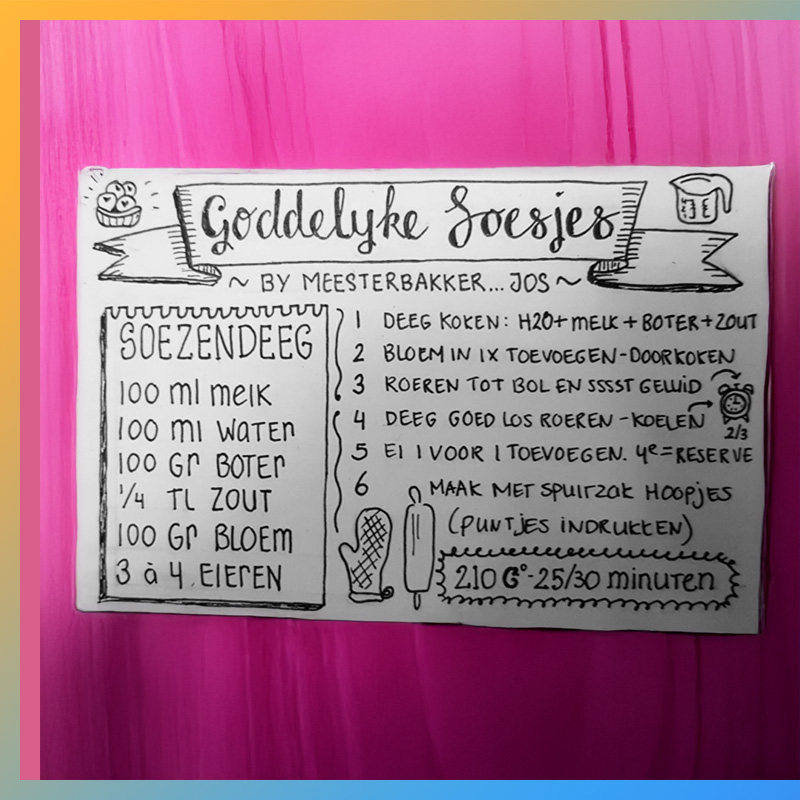 Goddelyke Soesjes
~ BY MEESTERBAKKER... JOS ~
SOEZENDEEG
100 ml melk
100 ml water
100 Gr BOTER
1/4 TL ZOUT
100 Gr BLOEM
3 à 4 EIEREN
1 DEEG KOKEN: H2O + MELK + BOTER + ZOUT
2 BLOEM IN 1X TOEVOEGEN - DOORKOKEN
3 ROEREN TOT BOL EN SSSST GELUID
4 DEEG GOED LOS ROEREN - KOELEN
2/3
5 EI 1 VOOR 1 TOEVOEGEN. 4e = RESERVE
6 MAAK MET SPUITZAK HOOPJES
(PUNTJES INDRUKKEN)
210 G° - 25/30 minuten